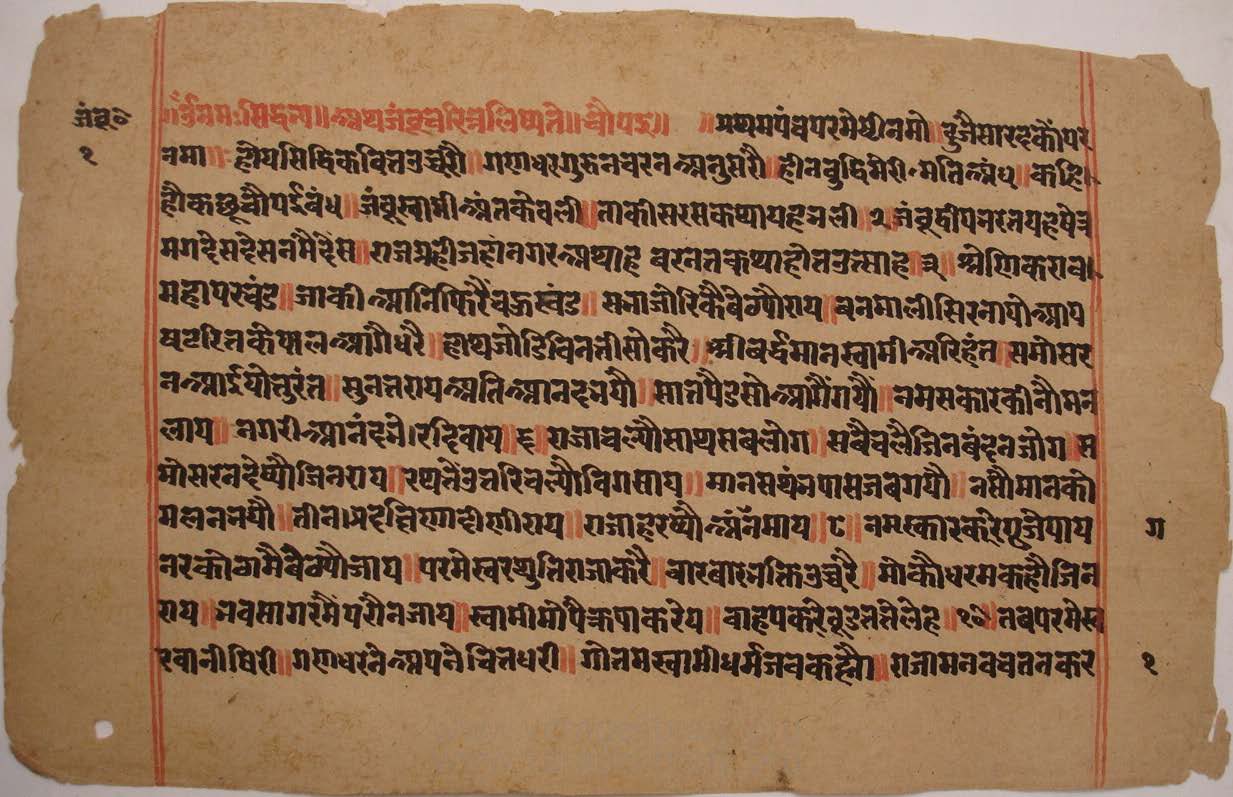 जंबू०
१
ॐनमःसिद्धेभ्य॥अथजंबूचरित्रलिष्यते॥चौपई॥ ॥प्रथमपंचपरमेष्टीनमो॥दुजैसारदकौंपर
नमा॥होयसिद्धिकवितउच्चरौ॥गणधरगुरुनचरनअनुसरौ॥हीनबुद्धिमेरीमतिअंध॥कहि
हौकछूचौपईबंध॥जंबूस्वामीअंतकेवली॥ताकीसरसकथायहभली॥२॥जंबूदीपभरतयहषेत्र
मगदेसदेसनमैदेस॥राजग्रहीजहांनगरअथाह॥बरनतकथाहोतउत्साह॥३॥श्रेणिकराव
महापरचंड॥जाकीआनिफिरैचऊखंड॥सभाजोरिकैबेठ्यौराय॥बनमालीसिरनायोआय
षटरितकेफालआगैधरै॥हाथजोडिविनतीसोकरै॥श्रीबर्दमानस्वामीअरिहंत॥समोसर
नआईयोतुरंत॥सुनतरायअतिआनंदभयौ॥सातपैडसोआगैंगयौं॥नमसकारकीनौमन
लाय॥नगरीआनंदभेरिदिवाय॥६॥राजाचल्यौसाथसबलोग॥सबैचलैजिनबंदनजोग॥स
मोसरनदेष्यौजिनराय॥रथतैंउतरिचल्यौविगसाय॥मानसथंनपासजबगयौ॥नसौमानको
मलननयौ॥तीनप्रदक्षिणादीणीराय॥राजाहरष्यौअंनमाय॥८॥नमस्कारकरिपूजेपाय
नरकोठामैबैठ्यौजाय॥परमेस्वरथुतिराजाकरै॥बारबारभक्तिउच्चरै॥मोकौधरमकहौजिन
राय॥भवसागरमैपरौनजाय॥स्वामीमोपैक्रपाकरेय॥बाहपकरबूडततेलेह॥१०॥तबपरमेस्व
रवानीषिरी॥गणधरनेअपनेचितधरी॥गोतमस्वामीधर्मजबकह्यौ॥राजामनबचतनकर
ग
१